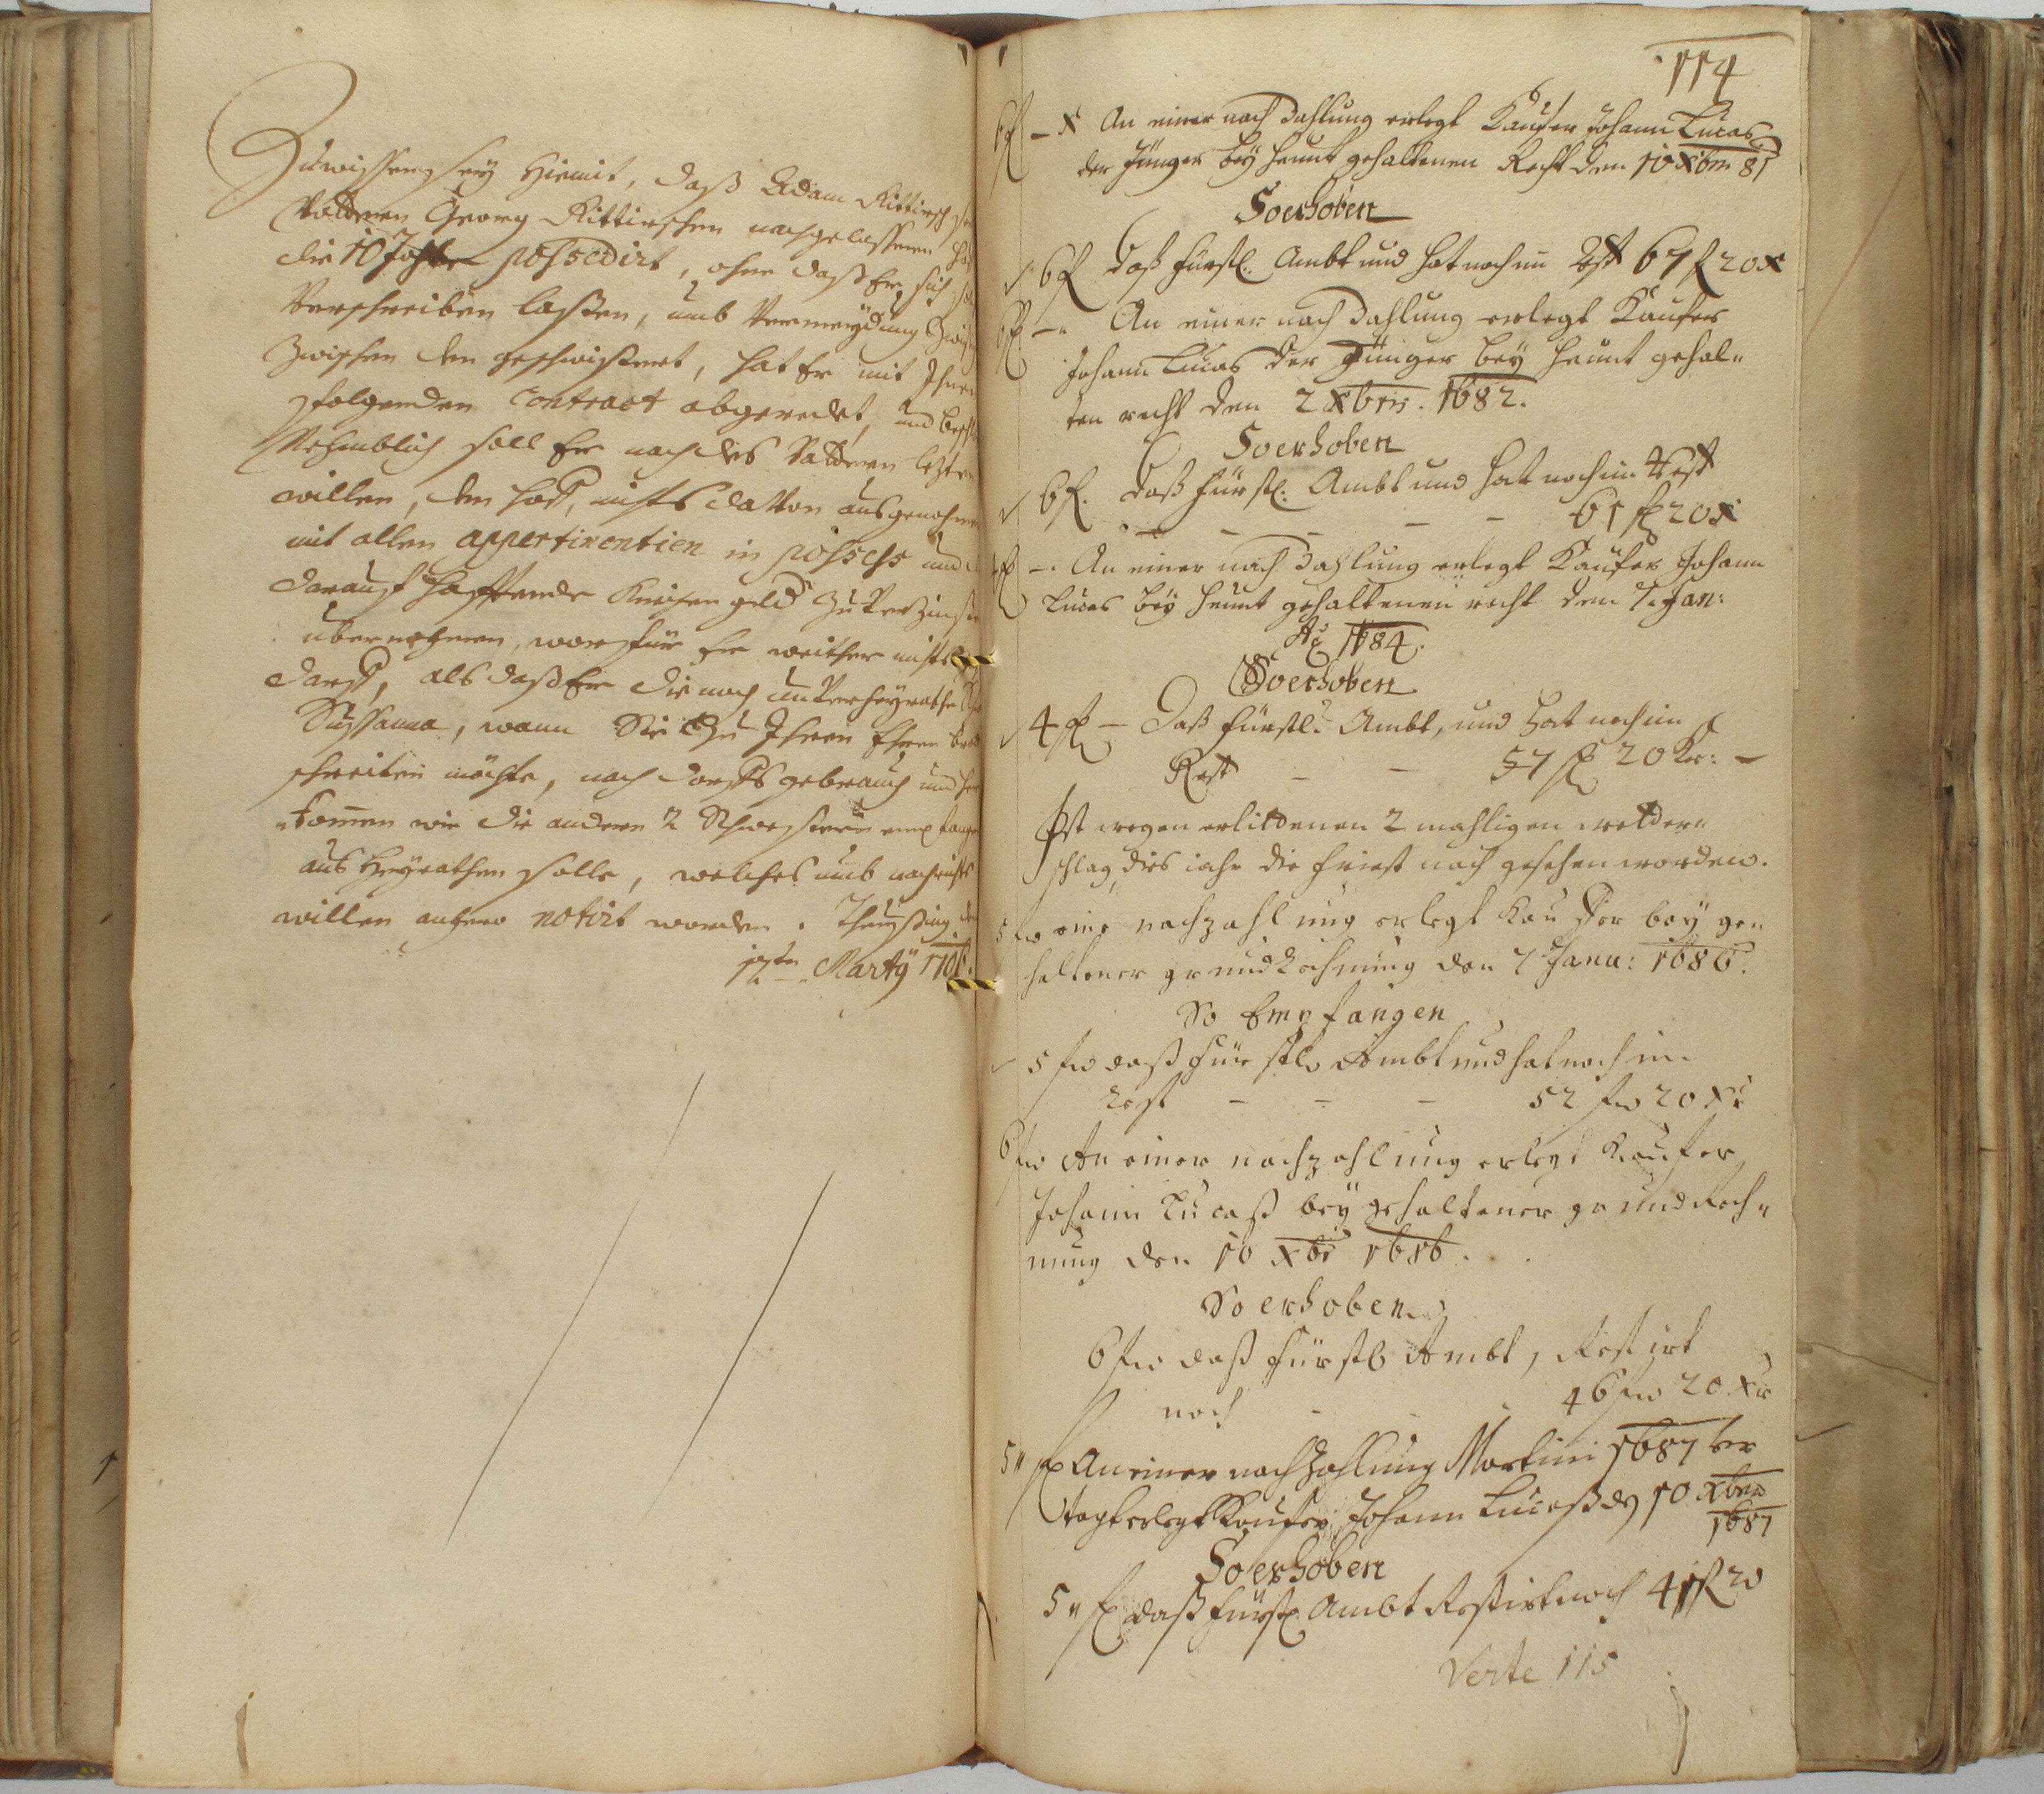 Zuwissen sey hiemit, daß Adam Rittirsch
Vattern Georg Rittirschen nachgelassenen
die 10 Jahr possedirt, ohne daß Er sich
Verschreiben laßen, umb Vermeydung
zwischen den geschwistert, hat Er mit Ihnen
folgenden Contract abgeredet, und
Nehmblich soll Er nach des Vattern letzten
willen, den hoff, nichts davon ausgenohmen
mit allen appertinentien in possess und
darauf hafftende Kirchen geld zu verzinsen
übernehmen, worfür Er weither nichts
darff, als daß Er die noch unverheyrathe
Sussanna, wann Sie zu Ihren Ehren
schreiten möchte, nach dorffs gebrauch und
kommen wie die andern 2 Schwestern empfangen
aus heyrathen solle, welches umb nachrichts
willen anhero notirt worden. Theusing
12ten Martÿ 170
114
6 f – x An einer nach Zahlung erlegt Kaufer Johann Lucas
der Jünger bey heunt gehaltenen Recht den 10 Xbris 81
So erhoben
6 f daß fürstl. Ambt und hat noch im Rest 67 f 20 x
6 f – An einer nach Zahlung erlegt Kaufer
Johann Lucas der Jünger bey heunt gehal„
ten recht den 2 Xbris. 1682.
So erhoben
6 f. daß fürstl: Ambt und hat noch im Rest
– – – – – 61 f 20 x
4 f –. An einer nach Zahlung erlegt Kaufer Johann
Lucas bey heunt gehaltenen recht den 7. Jan:
Ao 1684.
So erhoben
4 f – Daß fürstl. Ambt, und hat noch im
Rest – – 57 f 20 Kr: –
Ist wegen erlittenen 2 mahligen wetter„
schlag, dies iahr die friest nach gesehen worden.
5 f eine nachzahlung erlegt Kauffer bey ge„
haltener grundRechnung den 7 Janu: 1686.
So Empfangen
5 f daß fürstl Ambt und hat noch im
Rest – – – 52 f 20 Xr
6 f An einer nachzahlung erlegt Kaufer
Johann Lucaß bey gehaltener grundRech„
nung den 10 Xbr 1686.
So erhoben
6 f daß fürstl Ambt, Restirt
noch – – 46 f 20 Xr
5„ f An einer nachZahlung Martini 1687 ver
tagt erlegt Kaufer Johann Lucaß den 10 Xber
1687
So erhoben
5„ f daß fürstl Ambt Restirt noch 41 f 20
Verte 115